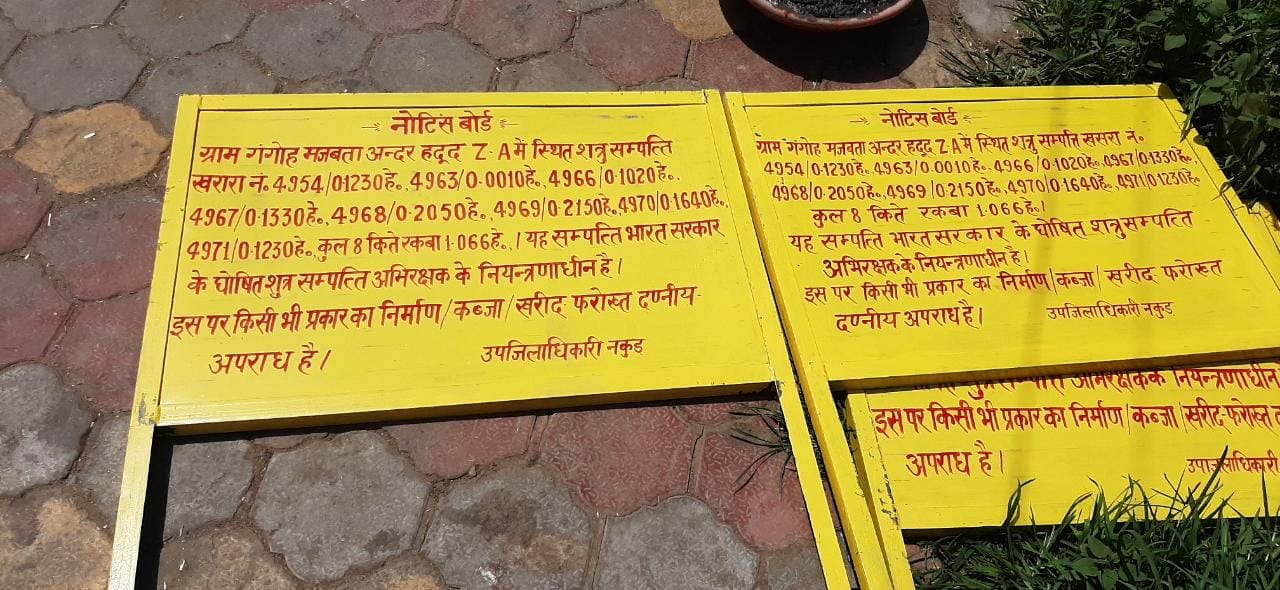 नोटिस बोर्ड
ग्राम गंगोह मजबता अन्दर हदूद Z.A में स्थित शत्रु सम्पत्ति
खरारा नं. 4954/0.1230हे., 4963/0.0010हे., 4966/0.1020हे.,
4967/0.1330हे., 4968/0.2050हे., 4969/0.2150हे., 4970/0.1640हे.,
4971/0.1230हे., कुल 8 किते रकबा 1.066हे., । यह सम्पत्ति भारत सरकार
के घोषित शुत्र सम्पत्ति अभिरक्षक के नियन्त्रणाधीन है।
इस पर किसी भी प्रकार का निर्माण/कब्जा/खरीद फरोस्त दण्नीय
अपराध है।
उपजिलाधिकारी नकुड़
नोटिस बोर्ड
ग्राम गंगोह मजबता अन्दर हदूद Z.A में स्थित शत्रु सम्पत्ति खसरा नं.
4954/0.1230हे., 4963/0.0010हे., 4966/0.1020हे., 4967/0.1330हे.,
4968/0.2050हे., 4969/0.2150हे., 4970/0.1640हे., 4971/0.1230हे.
कुल 8 किते रकबा 1.066हे.।
यह सम्पत्ति भारत सरकार के घोषित शत्रु सम्पत्ति
अभिरक्षक के नियन्त्रणाधीन है।
इस पर किसी भी प्रकार का निर्माण/कब्जा/खरीद फरोस्त
दण्नीय अपराध है।
उपजिलाधिकारी नकुड़
सम्पत्ति अभिरक्षक के नियन्त्रणाधीन
इस पर किसी भी प्रकार का निर्माण/कब्जा/खरीद-फरोस्त
अपराध है।
उपजिलाधिकारी